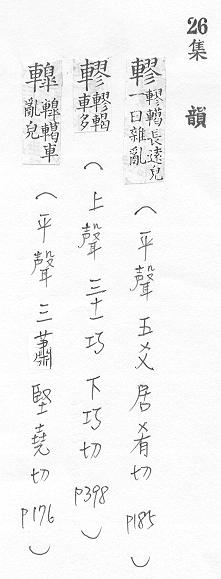 26
集 韻
轇 轇轕長遠皃一曰雜亂 (平聲 五爻 居肴切 P185)
轇 轇轕車多 (上聲 三十一巧 下巧切 P398)
轕車亂皃 (平聲 三蕭 堅堯切 P176)